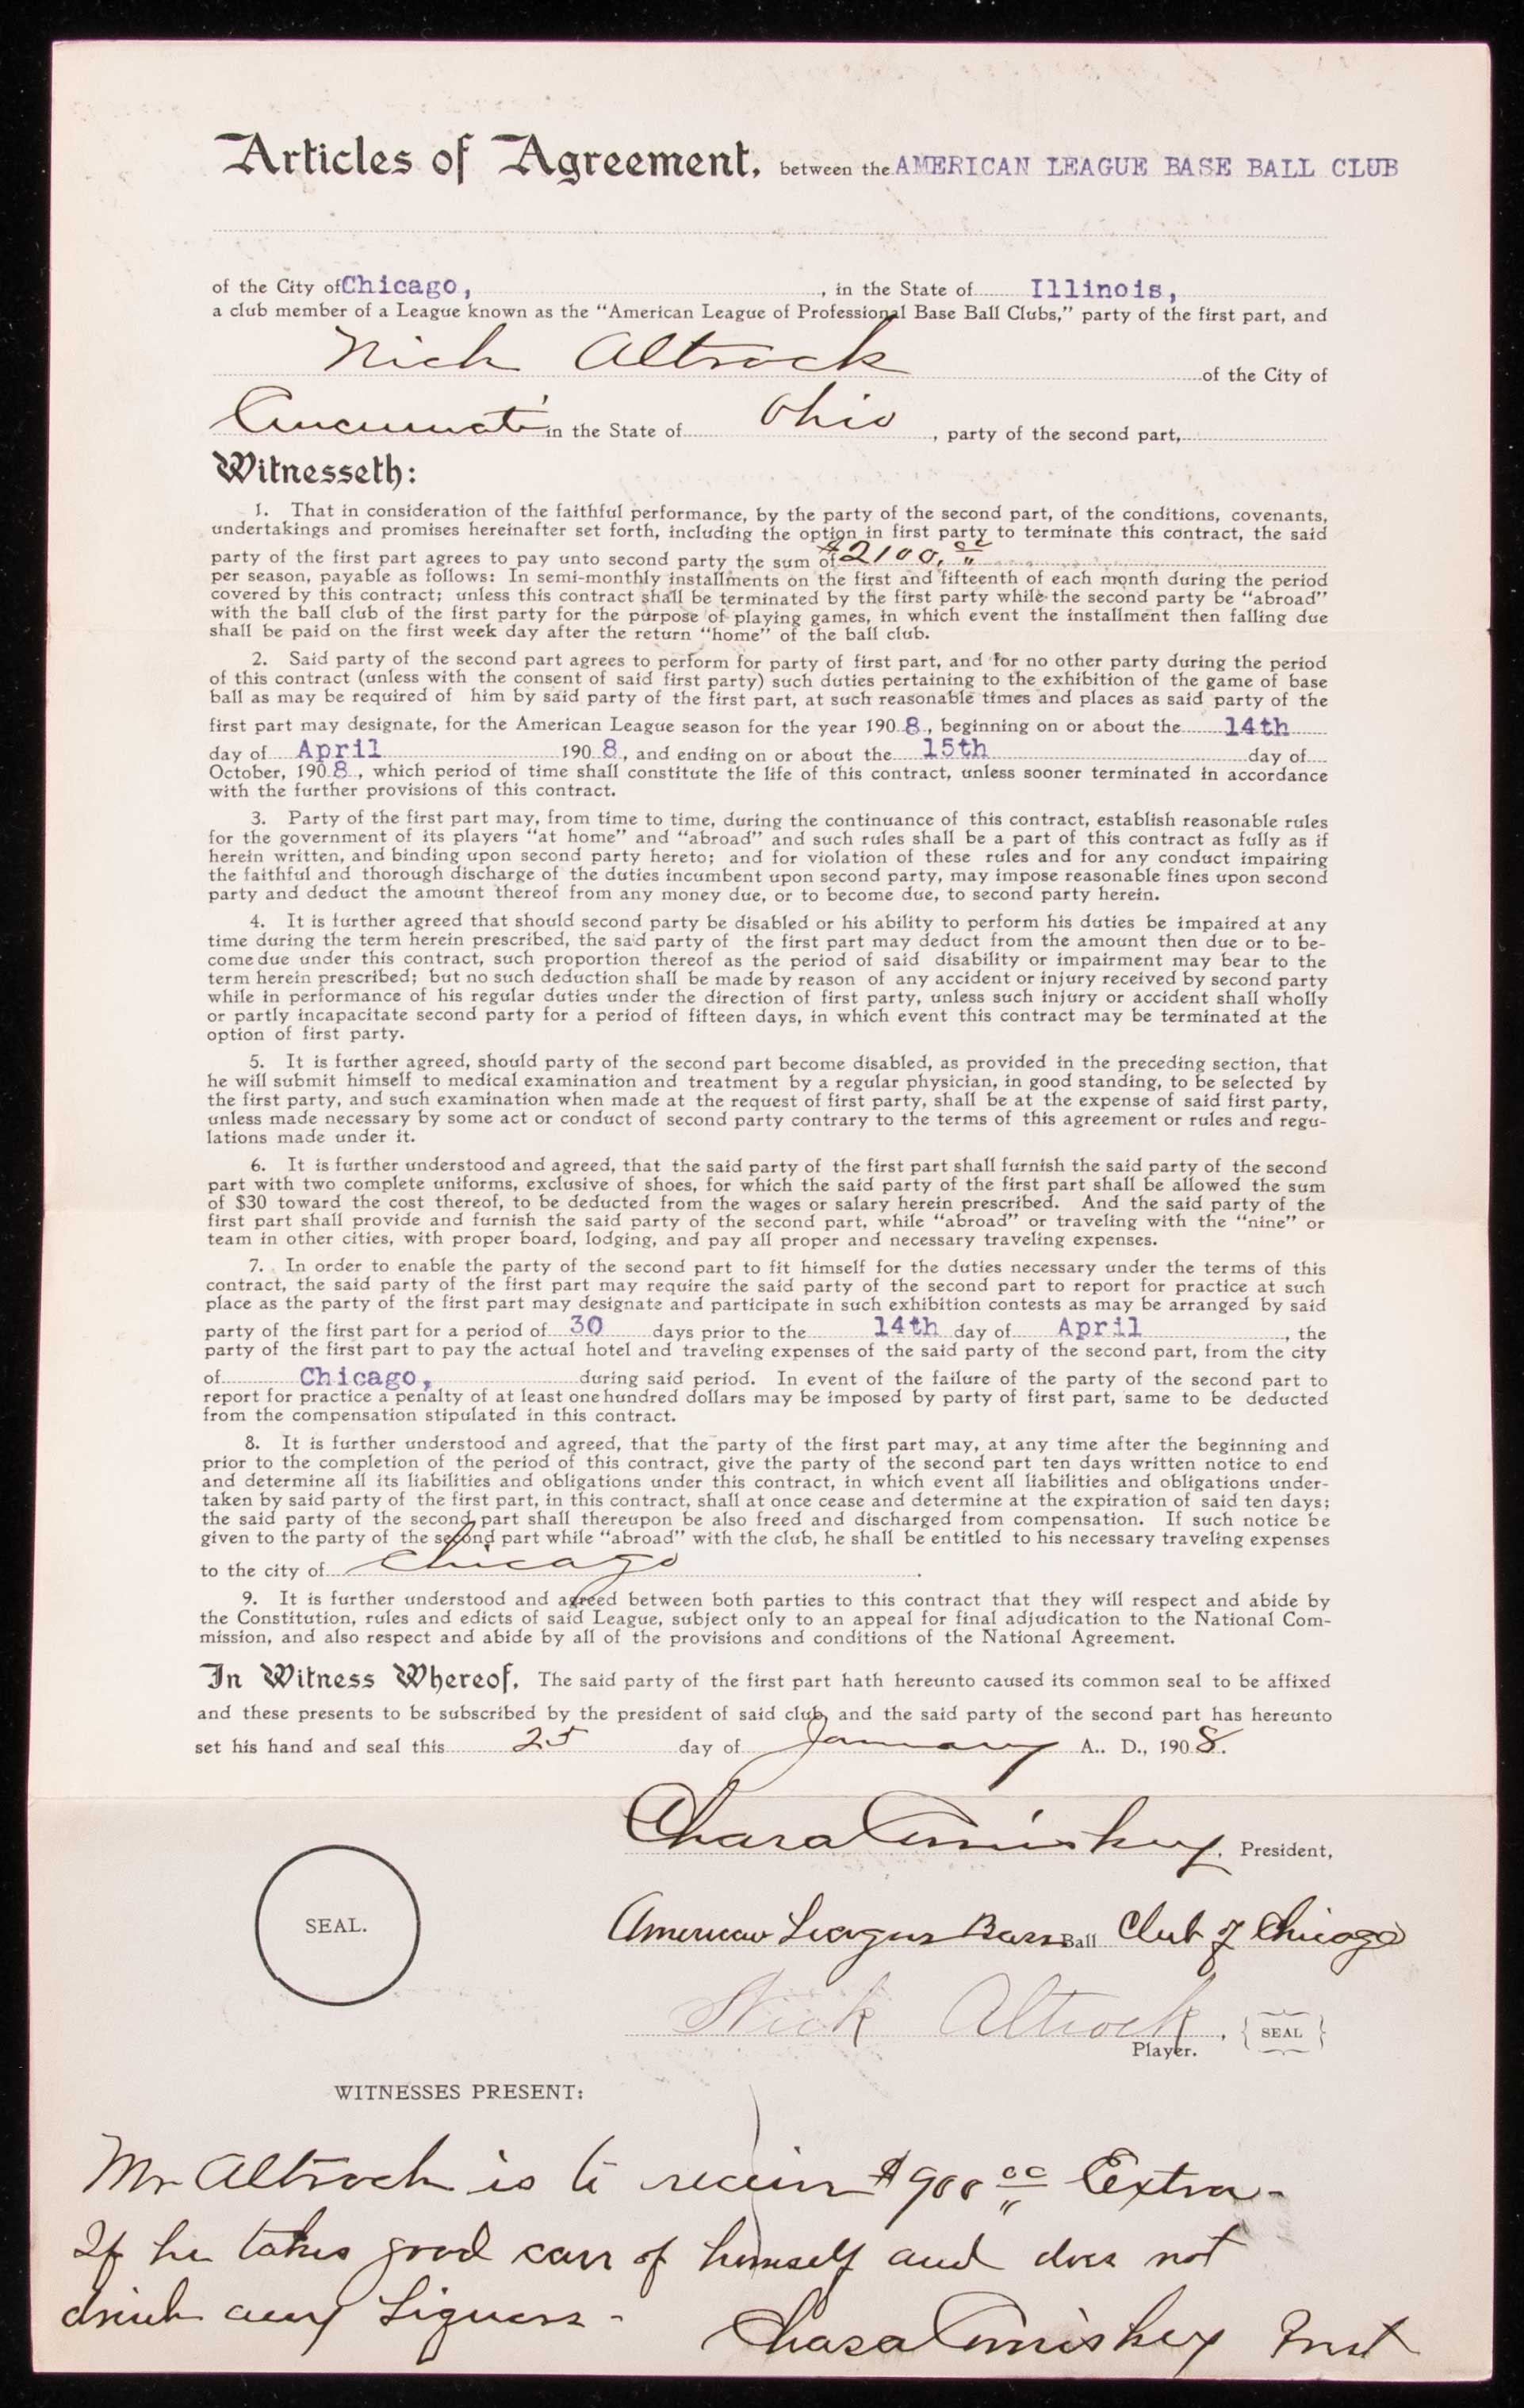 Articles of Agreement, between the AMERICAN LEAGUE BASE BALL CLUB
of the City of Chicago, , in the State of Illinois,
a club member of a League known as the "American League of Professional Base Ball Clubs," party of the first part, and
Nick Altrock of the City of
Cincinnati in the State of Ohio , party of the second part,
Witnesseth:
1. That in consideration of the faithful performance, by the party of the second part, of the conditions, covenants,
undertakings and promises hereinafter set forth, including the option in first party to terminate this contract, the said
party of the first part agrees to pay unto second party the sum of $2100.00
per season, payable as follows: In semi-monthly installments on the first and fifteenth of each month during the period
covered by this contract; unless this contract shall be terminated by the first party while the second party be "abroad"
with the ball club of the first party for the purpose of playing games, in which event the installment then falling due
shall be paid on the first week day after the return "home" of the ball club.
2. Said party of the second part agrees to perform for party of first part, and for no other party during the period
of this contract (unless with the consent of said first party) such duties pertaining to the exhibition of the game of base
ball as may be required of him by said party of the first part, at such reasonable times and places as said party of the
first part may designate, for the American League season for the year 1908, beginning on or about the 14th
day of April 1908, and ending on or about the 15th day of
October, 1908, which period of time shall constitute the life of this contract, unless sooner terminated in accordance
with the further provisions of this contract.
3. Party of the first part may, from time to time, during the continuance of this contract, establish reasonable rules
for the government of its players "at home" and "abroad" and such rules shall be a part of this contract as fully as if
herein written, and binding upon second party hereto; and for violation of these rules and for any conduct impairing
the faithful and thorough discharge of the duties incumbent upon second party, may impose reasonable fines upon second
party and deduct the amount thereof from any money due, or to become due, to second party herein.
4. It is further agreed that should second party be disabled or his ability to perform his duties be impaired at any
time during the term herein prescribed, the said party of the first part may deduct from the amount then due or to be-
come due under this contract, such proportion thereof as the period of said disability or impairment may bear to the
term herein prescribed; but no such deduction shall be made by reason of any accident or injury received by second party
while in performance of his regular duties under the direction of first party, unless such injury or accident shall wholly
or partly incapacitate second party for a period of fifteen days, in which event this contract may be terminated at the
option of first party.
5. It is further agreed, should party of the second part become disabled, as provided in the preceding section, that
he will submit himself to medical examination and treatment by a regular physician, in good standing, to be selected by
the first party, and such examination when made at the request of first party, shall be at the expense of said first party,
unless made necessary by some act or conduct of second party contrary to the terms of this agreement or rules and regu-
lations made under it.
6. It is further understood and agreed, that the said party of the first part shall furnish the said party of the second
part with two complete uniforms, exclusive of shoes, for which the said party of the first part shall be allowed the sum
of $30 toward the cost thereof, to be deducted from the wages or salary herein prescribed. And the said party of the
first part shall provide and furnish the said party of the second part, while "abroad" or traveling with the "nine" or
team in other cities, with proper board, lodging, and pay all proper and necessary traveling expenses.
7. In order to enable the party of the second part to fit himself for the duties necessary under the terms of this
contract, the said party of the first part may require the said party of the second part to report for practice at such
place as the party of the first part may designate and participate in such exhibition contests as may be arranged by said
party of the first part for a period of 30 days prior to the 14th day of April , the
party of the first part to pay the actual hotel and traveling expenses of the said party of the second part, from the city
of Chicago, during said period. In event of the failure of the party of the second part to
report for practice a penalty of at least one hundred dollars may be imposed by party of first part, same to be deducted
from the compensation stipulated in this contract.
8. It is further understood and agreed, that the party of the first part may, at any time after the beginning and
prior to the completion of the period of this contract, give the party of the second part ten days written notice to end
and determine all its liabilities and obligations under this contract, in which event all liabilities and obligations under-
taken by said party of the first part, in this contract, shall at once cease and determine at the expiration of said ten days;
the said party of the second part shall thereupon be also freed and discharged from compensation. If such notice be
given to the party of the second part while "abroad" with the club, he shall be entitled to his necessary traveling expenses
to the city of Chicago .
9. It is further understood and agreed between both parties to this contract that they will respect and abide by
the Constitution, rules and edicts of said League, subject only to an appeal for final adjudication to the National Com-
mission, and also respect and abide by all of the provisions and conditions of the National Agreement.
In Witness Whereof, The said party of the first part hath hereunto caused its common seal to be affixed
and these presents to be subscribed by the president of said club, and the said party of the second part has hereunto
set his hand and seal this 25 day of January A. D., 1908.
Chas a Comiskey, President,
SEAL.
American League Base Ball Club of Chicago
Nick Altrock, SEAL
Player.
WITNESSES PRESENT:
Mr Altrock is to receive $900.00 Extra -
If he takes good care of himself and does not
drink any Liquors -
Chas a Comiskey Prest